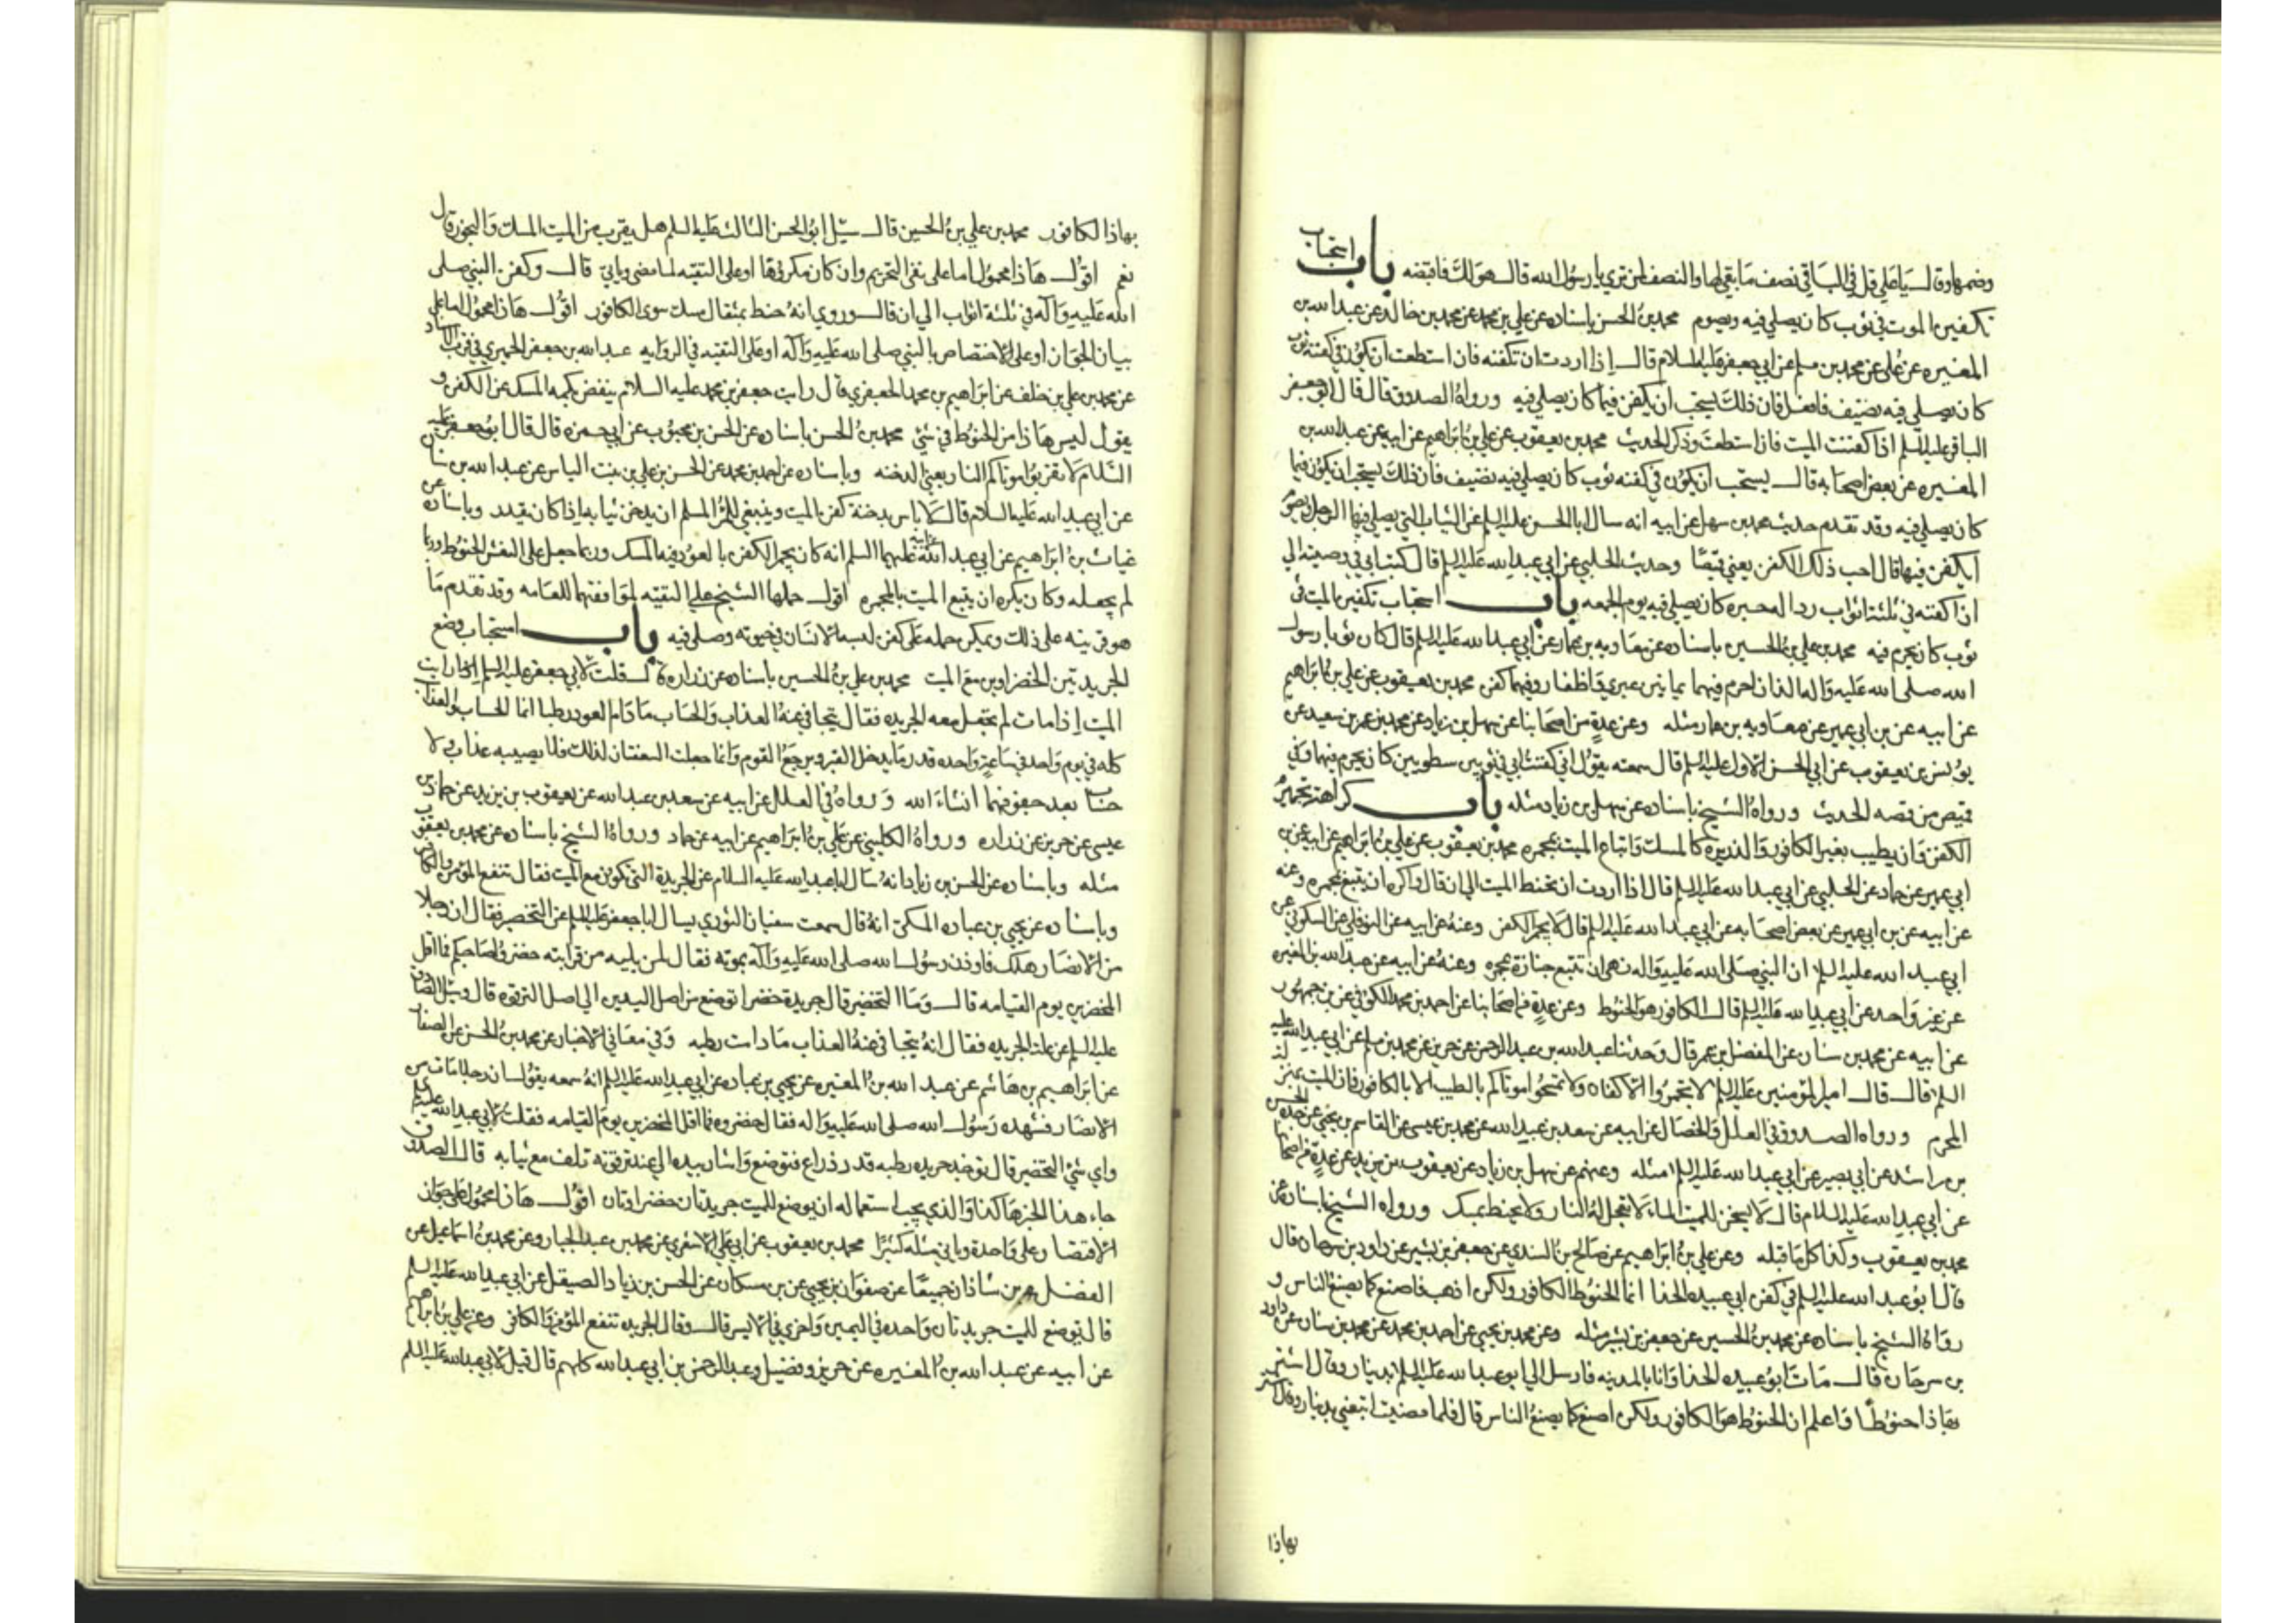 وضمها وقال يا علي قل في الباقي نصف ما بقي لها والنصف لمن ترى يا رسول الله قال هو لك فاقبضه باب استحباب
تكفين الموت في ثوب كان يصلي فيه ويصوم محمد بن الحسن باسناده عن علي بن محمد عن محمد بن خالد عن عبد الله بن
المغيره عن علا عن محمد بن مسلم عن ابي جعفر عليه السلام قال اذا اردت ان تكفنه فان استطعت ان يكون في كفنه ثوب
كان يصلي فيه نضيف فافعل فان ذلك يستحب ان يكفن فيما كان يصلي فيه ورواه الصدوق قال قال ابو جعفر
الباقر عليه السلم اذا كفنت الميت فان استطعت وذكر الحديث محمد بن يعقوب عن علي بن ابراهيم عن ابيه عن عبد الله بن
المغيره عن بعض اصحابه قال يستحب ان يكون في كفنه ثوب كان يصلي فيه نضيف فان ذلك يستحب ان يكون فيما
كان يصلي فيه وقد تقدم حديث محمد بن سهل عن ابيه انه سال ابا الحسن عليه السلم عن الثياب التي يصلي فيها الرجل ويصوم
ايكفن فيها قال احب ذلك الكفن يعني قميصا وحديث الحلبي عن ابي عبد الله عليه السلم قال كتب ابي في وصيته الي
ان اكفنه في ثلثة اثواب ردا له حبره كان يصلي فيه يوم الجمعه باب استحباب تكفين الميت في
ثوب كان يحرم فيه محمد بن علي بن الحسين باسناده عن معاويه بن عمار عن ابي عبد الله عليه السلم قال كان ثوبا رسول
الله صلى الله عليه واله الذان احرم فيهما يمانيين عبري واظفار وفيهما كفن محمد بن يعقوب عن علي بن ابراهيم
عن ابيه عن بن ابي عمير عن معاويه بن عمار مثله وعن عدة من اصحابنا عن سهل بن زياد عن محمد بن عمرو بن سعيد عن
يونس بن يعقوب عن ابي الحسن الاول عليه السلم قال سمعته يقول اني كفنت ابي في ثوبين سطويين كان يحرم فيهما وفي
قميص من قمصه الحديث ورواه الشيخ باسناده عن سهل بن زياد مثله باب كراهة تجمير
الكفن وان يطيب بغير الكافور والذريره كالمسك واتباع الميت بمجمره محمد بن يعقوب عن علي بن ابراهيم عن ابيه عن بن
ابي عمير عن حماد عن الحلبي عن ابي عبد الله عليه السلم قال اذا اردت ان تحنط الميت الى ان قال واكره ان يتبع بمجمره وعنه
عن ابيه عن بن ابي عمير عن بعض اصحابه عن ابي عبد الله عليه السلم قال لا يجمر الكفن وعنه عن ابيه عن النوفلي عن السكوني عن
ابي عبد الله عليه السلم ان النبي صلى الله عليه واله نهى ان تتبع جنازة بمجمره وعنه عن ابيه عن عبد الله بن المغيره
عن غير واحد عن ابي عبد الله عليه السلم قال الكافور هو الحنوط وعن عدة من اصحابنا عن احمد بن محمد الكوفي عن بن جمهور
عن ابيه عن محمد بن سنان عن المفضل بن عمر قال وحدثنا عبد الله بن عبد الرحمن عن حريز عن محمد بن مسلم عن ابي عبد الله عليه
السلم قال قال امير المؤمنين عليه السلم لا تجمروا الاكفان ولا تمسحوا موتاكم بالطيب الا بالكافور فان الميت بمنزلة
المحرم ورواه الصدوق في العلل والخصال عن ابيه عن سعد بن عبد الله عن محمد بن عيسى عن القاسم بن يحيى عن جده الحسن
بن راشد عن ابي بصير عن ابي عبد الله عليه السلم مثله وعنهم عن سهل بن زياد عن يعقوب بن يزيد عن عدة من اصحابنا
عن ابي عبد الله عليه السلام قال لا يسخن للميت الماء لا تعجل له النار ولا يحنط بمسك ورواه الشيخ باسناده عن
محمد بن يعقوب وكذا كل ما قبله وعن علي بن ابراهيم عن صالح بن السندي عن جعفر بن بشير عن داود بن سرحان قال
قال ابو عبد الله عليه السلم في كفن ابي عبيده الحذا انما الحنوط الكافور ولكن اذهب فاصنع كما يصنع الناس و
رواه الشيخ باسناده عن محمد بن الحسين عن جعفر بن بشير مثله وعن محمد بن يحيى عن احمد بن محمد عن محمد بن سنان عن داود
بن سرحان قال مات ابو عبيده الحذا وانا بالمدينه فارسل الي ابو عبد الله عليه السلم بدينار وقال اشتر
بهاذا حنوطا واعلم ان الحنوط هو الكافور ولكن اصنع كما يصنع الناس قال فلما مضيت اتبعني بدينار وقال اشتر
بهاذا
بهاذا الكافور محمد بن علي بن الحسين قال سئل ابو الحسن الثالث عليه السلم هل يقرب من الميت المسك والبخور قال
نعم اقول هاذا محمول اما على نفي التحريم وان كان مكروها او على التقيه لما مضى وياتي قال وكفن النبي صلى
الله عليه وآله في ثلثة اثواب الى ان قال وروي انه حنط بمثقال مسك سوى الكافور اقول هاذا محمول اما على
بيان الجواز او على الاختصاص بالنبي صلى الله عليه وآله او على التقيه في الروايه عبد الله بن جعفر الحميري في قرب الاسناد
عن محمد بن علي بن خلف عن ابراهيم بن محمد الجعفري قال رايت جعفر بن محمد عليه السلام ينفض بكمه المسك عن الكفن و
يقول ليس هاذا من الحنوط في شئ محمد بن الحسن باسناده عن الحسن بن محبوب عن ابي حمزه قال قال ابو جعفر عليه
السلام لا تقربوا موتاكم النار يعني الدخنه وباسناده عن احمد بن محمد عن الحسن بن علي بن بنت الياس عن عبد الله بن سنان
عن ابي عبد الله عليه السلام قال لا باس بدخنة كفن الميت وينبغي للمرء المسلم ان يدخن ثيابه اذا كان يقدر وباسناده عن
غياث بن ابراهيم عن ابي عبد الله عن ابيه عليهما السلم انه كان يجمر الكفن بالعود فيه المسك وربما جعل على النعش الحنوط وربما
لم يجعله وكان يكره ان يتبع الميت بالمجمره اقول حملها الشيخ على التقيه لموافقتهما للعامه وقد تقدم ما
هو قرينه على ذلك ويمكن حمله على كفن لبسه الانسان في حيوته وصلى فيه باب استحباب وضع
الجريدتين الخضراوين مع الميت محمد بن علي بن الحسين باسناده عن زراره قال قلت لابي جعفر عليه السلم ارايت
الميت اذا مات لم يجعل معه الجريده فقال يتجافى عنه العذاب والحساب ما دام العود رطبا انما الحساب والعذاب
كله في يوم واحد في ساعة واحده قدر ما يدخل القبر ويرجع القوم وانما جعلت السعفتان لذلك فلا يصيبه عذاب ولا
حساب بعد جفوفهما انشاء الله ورواه في العلل عن ابيه عن سعد بن عبد الله عن يعقوب بن يزيد عن حماد بن
عيسى عن حريز عن زراره ورواه الكليني عن علي بن ابراهيم عن ابيه عن حماد ورواه الشيخ باسناده عن محمد بن يعقوب
مثله وباسناده عن الحسن بن زياد انه سال ابا عبد الله عليه السلام عن الجريدة التي تكون مع الميت فقال تنفع المؤمن والكافر
وباسناده عن يحيى بن عباده المكي انه قال سمعت سفيان الثوري يسال ابا جعفر عليه السلم عن التخضير فقال ان رجلا
من الانصار هلك فاوذن رسول الله صلى الله عليه وآله بموته فقال لمن يليه من قرابته خضروا صاحبكم فما اقل
المخضرين يوم القيامه قال وما التخضير قال جريدة خضرا توضع من اصل اليدين الى اصل الترقوه قال وسئل الصادق
عليه السلم عن علة الجريده فقال انه يتجافى عنه العذاب ما دامت رطبه وفي معاني الاخبار عن محمد بن الحسن عن الصفار
عن ابراهيم بن هاشم عن عبد الله بن المغيره عن يحيى بن عباده عن ابي عبد الله عليه السلم انه سمعه يقول ان رجلا مات من
الانصار فشهده رسول الله صلى الله عليه واله فقال خضروه فما اقل المخضرين يوم القيامه فقلت لابي عبد الله عليه السلم
واي شئ التخضير قال توخذ جريده رطبه قدر ذراع فتوضع واشار بيده الى عند ترقوته تلف مع ثيابه قال الصدوق
جاء هذا الخبر هاكذا والذي يجب استعماله ان يوضع للميت جريدتان خضراوتان اقول هاذا محمول على جواز
الاقتصار على واحدة وياتي مثله كثيرا محمد بن يعقوب عن ابي علي الاشعري عن محمد بن عبد الجبار وعن محمد بن اسماعيل عن
الفضل بن شاذان جميعا عن صفوان بن يحيى عن بن مسكان عن الحسن بن زياد الصيقل عن ابي عبد الله عليه السلم
قال توضع للميت جريدتان واحده في اليمين واخرى في الايسر قال وقال الجريده تنفع المؤمن والكافر وعن علي بن ابراهيم
عن ابيه عن عبد الله بن المغيره عن حريز وفضيل وعبد الرحمن بن ابي عبد الله كلهم قال قيل لابي عبد الله عليه السلم